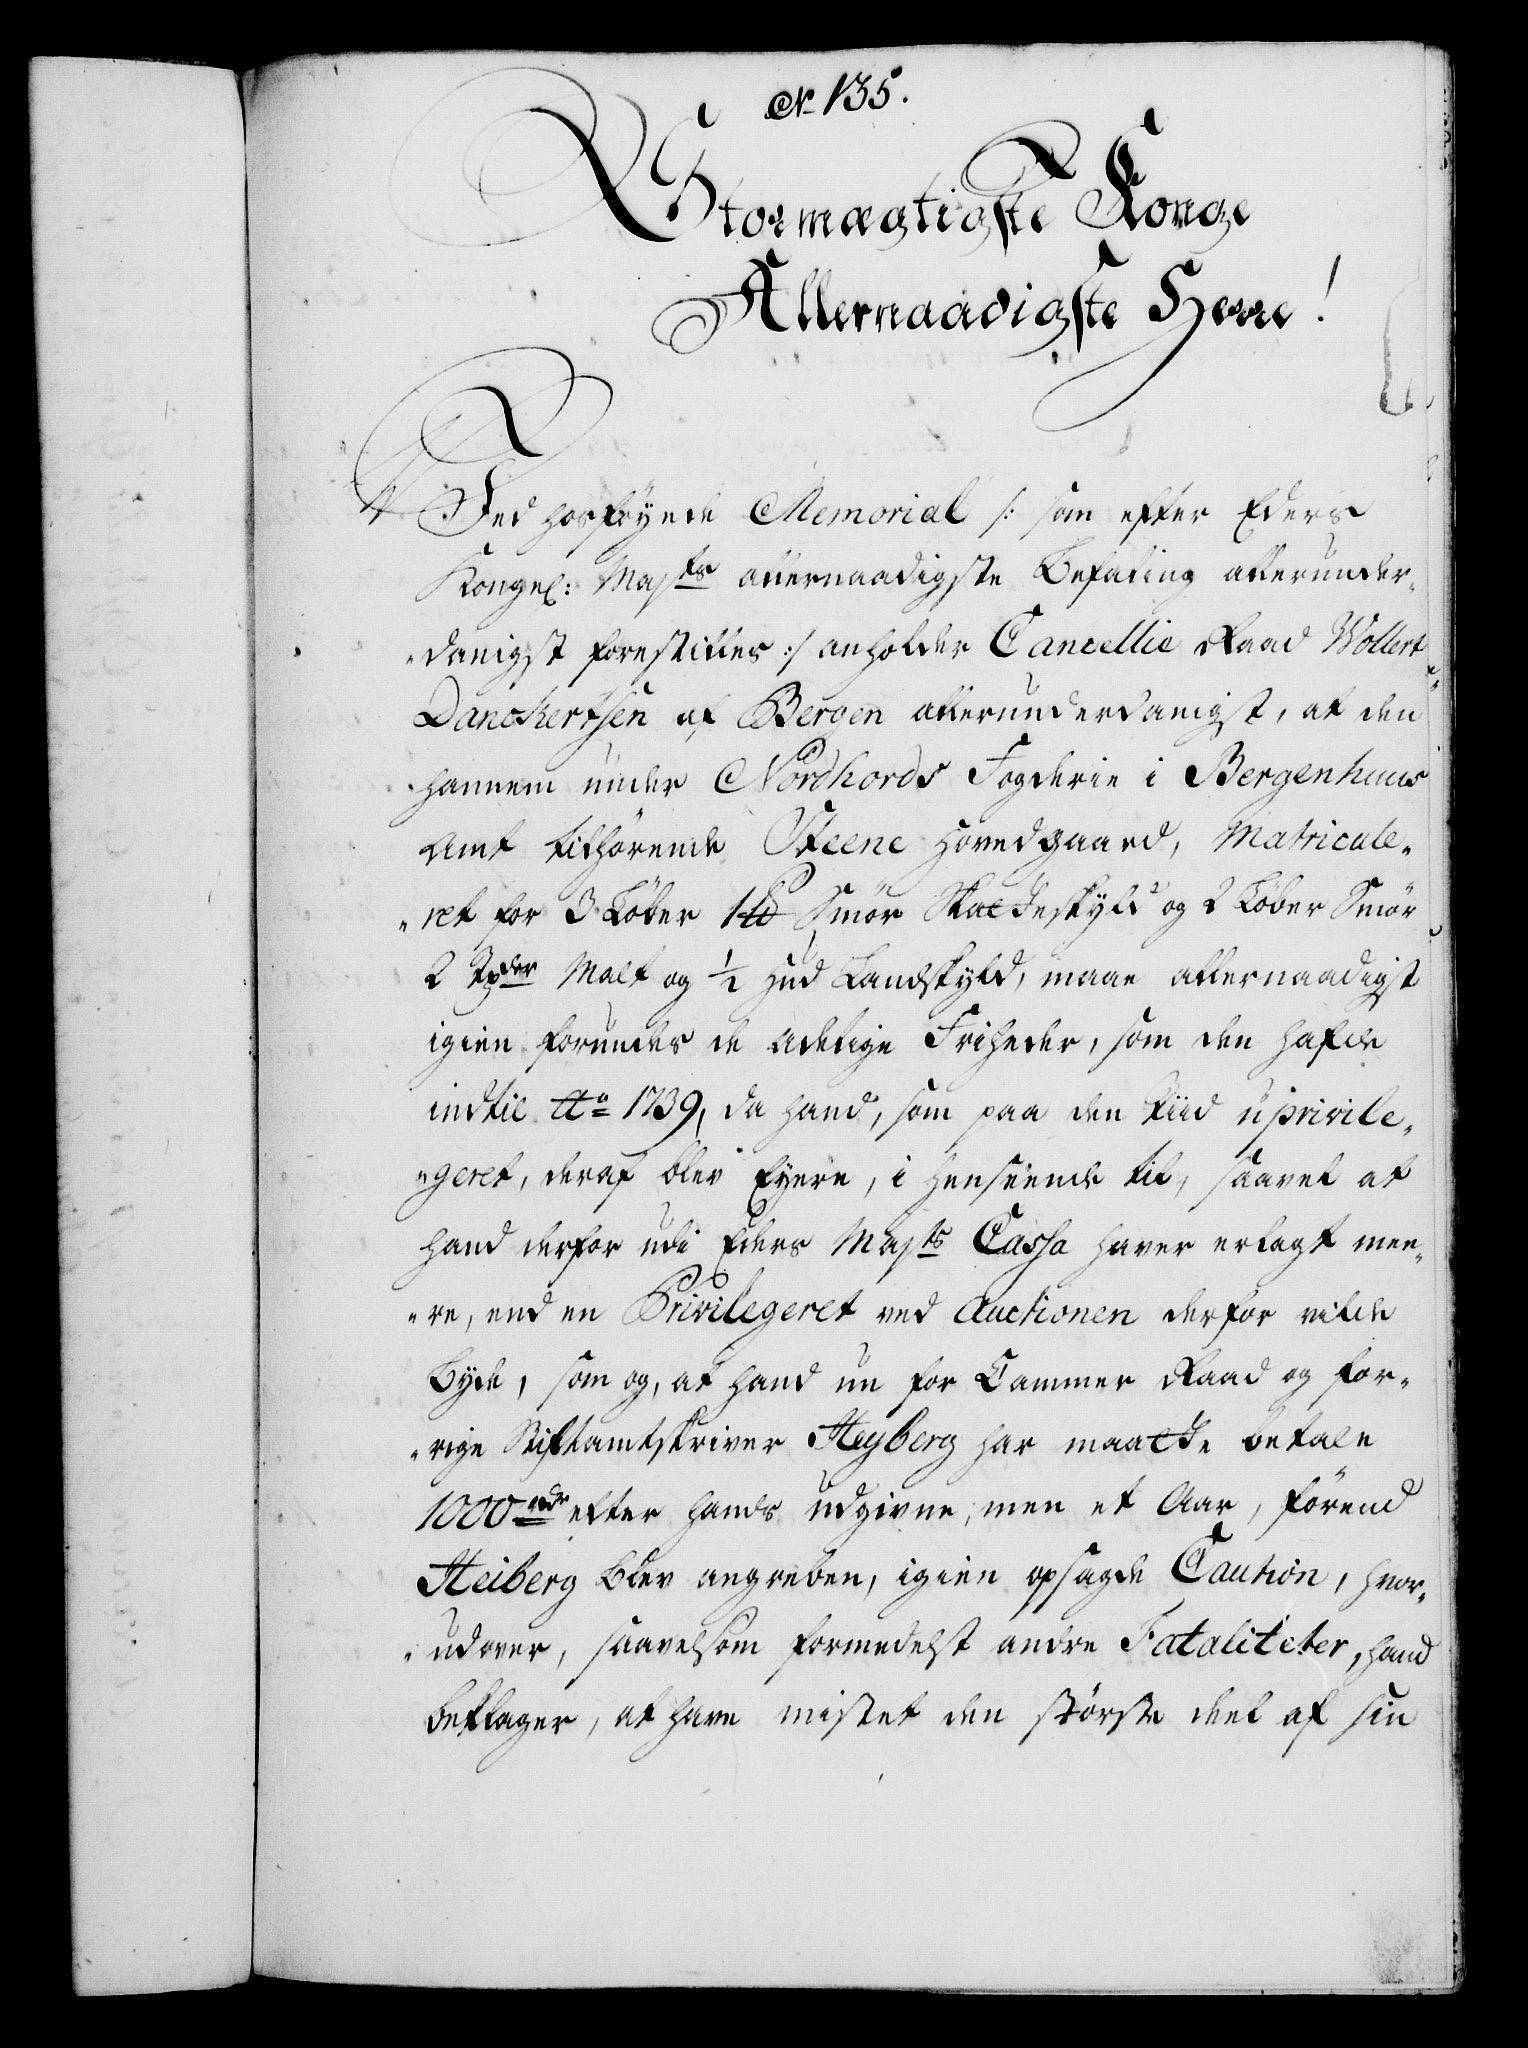 No 135.
Stormægtigste Konge
Allernaadigste Herre!
Ved hosföyede Memorial /: som efter Eders
Kongel: Majts allernaadigste Befaling allerunder-
"danigst forestilles :/ anholder Cancellie Raad Wollert
Danckertsen af Bergen allerunderdanigst, at den
hannem under Nordhords Fogderie i Bergenhuus
Amt tilhörende Steene Hovedgaard, Matricule-
"ret for 3 Löber 1 ℔ Smör Skatteskyld og 2 Löber Smör
2 Tder Malt og 1/2 Hud Landskyld, maae allernaadigst
igien forundes de adelige Friheder, som den hafde
indtil Ao 1739, da hand, som paa den Tiid uprivile-
"geret, deraf blev Eyere, i henseende til, saavel at
hand derfor udi Eders Majts Cassa haver erlagt mee-
"re, end en Privilegeret ved Auctionen derfor vilde
byde, som og, at hand nu for Cammer Raad og for-
"rige Stiftamtskriver Heyberg har maatte betale
1000 rdr efter hands udgivne, men et Aar, förend
Heiberg blev angreben, igien opsagde Caution, hvor-
"udover, saavelsom formedelst andre Fataliteter, hand
beklager, at have mistet den störste deel af sin